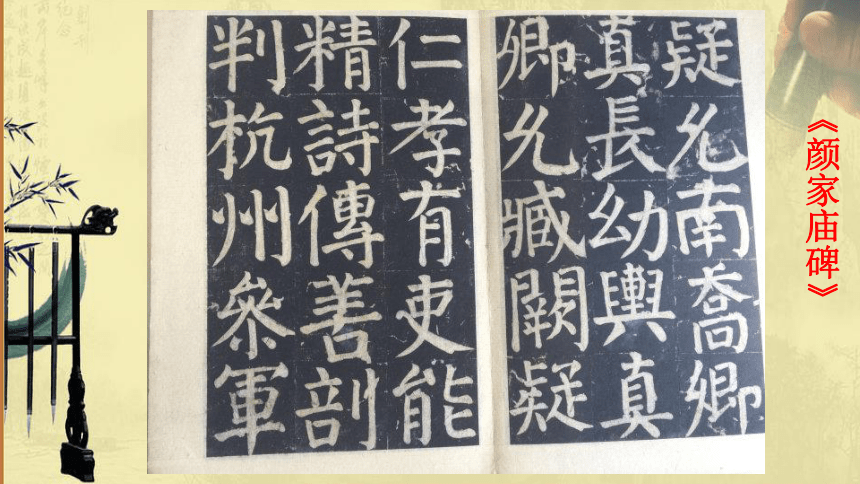 《颜家庙碑》
疑允南喬卿
真長幼輿真
卿允臧闕疑
仁孝有吏能
精詩傳善剖
判杭州叅軍